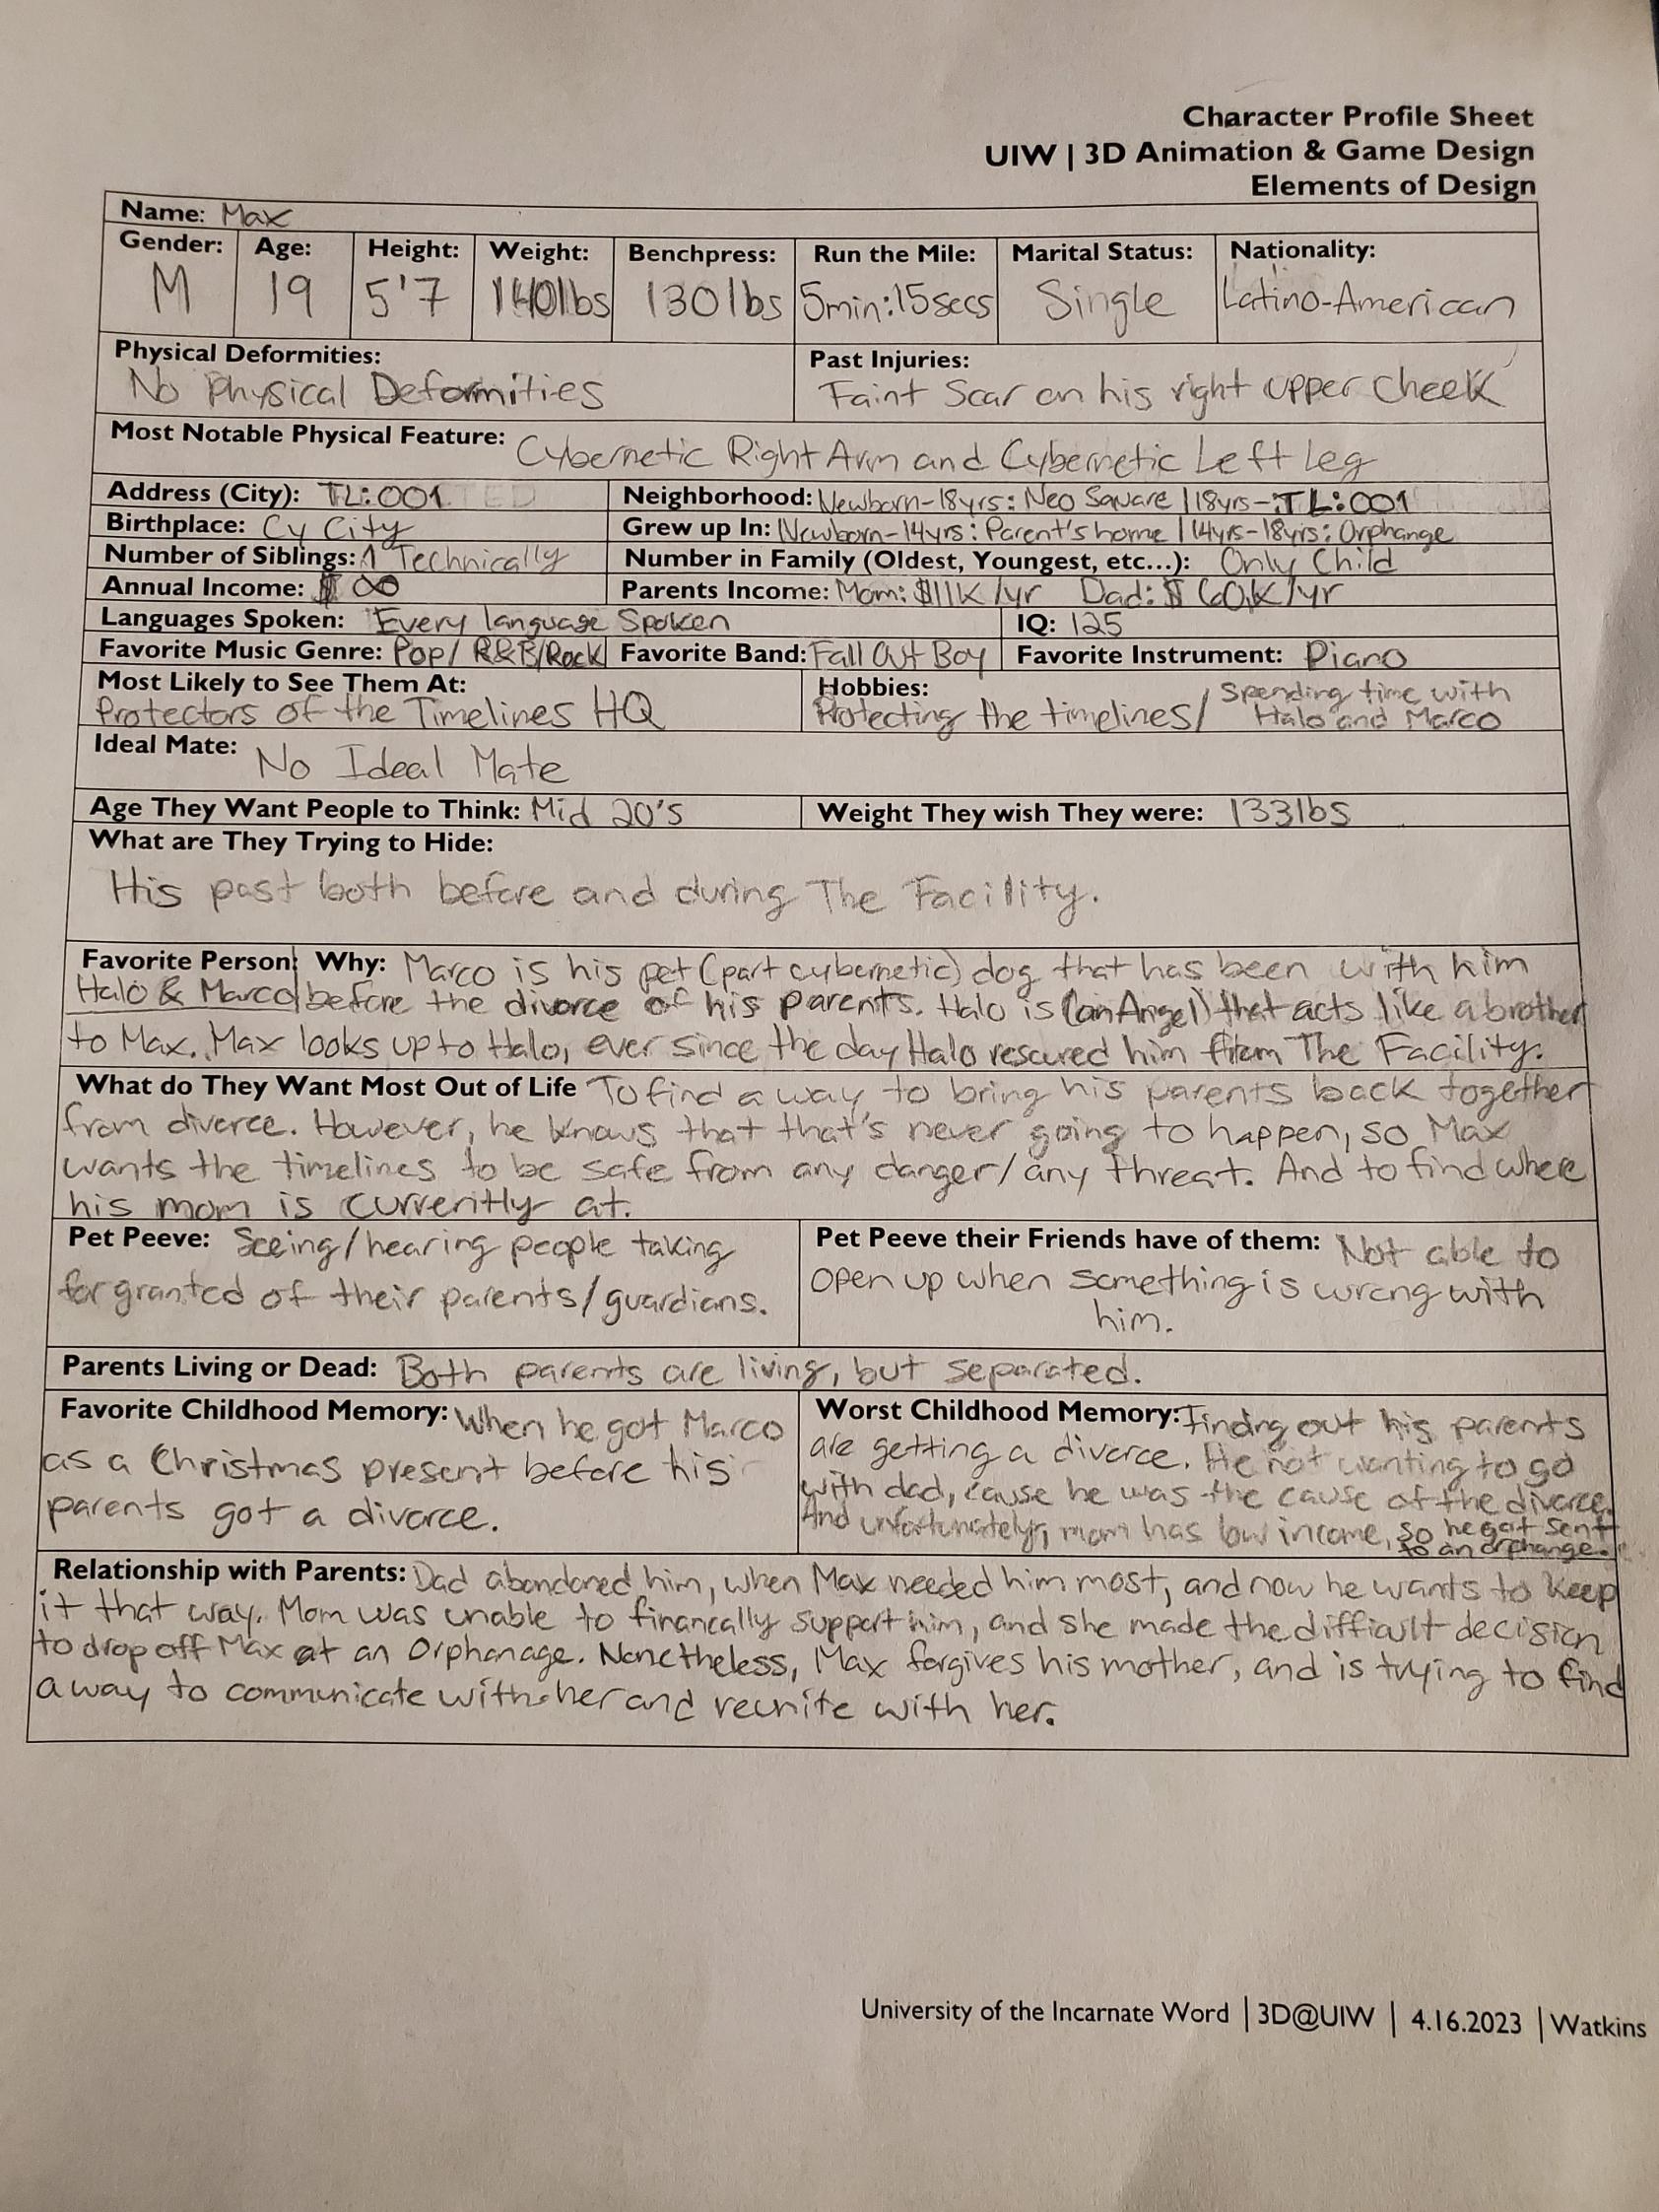 Character Profile Sheet
UIW | 3D Animation & Game Design
Elements of Design
Name: Max
Gender: Age: Height: Weight: Benchpress: Run the Mile: Marital Status: Nationality:
M 19 5'7 140lbs 130lbs 5min:15secs Single Latino-American
Physical Deformities: Past Injuries:
No Physical Deformities Faint Scar on his right upper cheek
Most Notable Physical Feature: Cybernetic Right Arm and Cybernetic Left Leg
Address (City): TL:001 Neighborhood: Newborn-18yrs: Neo Square | 18yrs-:TL:001
Birthplace: Cy City Grew up In: Newborn-14yrs: Parent's home | 14yrs-18yrs: Orphange
Number of Siblings: 1 Technically Number in Family (Oldest, Youngest, etc...): Only Child
Annual Income: $ ∞ Parents Income: Mom: $11K/yr Dad: $60K/yr
Languages Spoken: Every language Spoken IQ: 125
Favorite Music Genre: Pop/ R&B/Rock Favorite Band: Fall Out Boy Favorite Instrument: Piano
Most Likely to See Them At: Hobbies:
Protectors of the Timelines HQ Protecting the timelines/ Spending time with
Halo and Marco
Ideal Mate: No Ideal Mate
Age They Want People to Think: Mid 20's Weight They wish They were: 133lbs
What are They Trying to Hide:
His past both before and during The Facility.
Favorite Person: Why: Marco is his pet (part cybernetic) dog that has been with him
Halo & Marco before the divorce of his parents. Halo is (an Angel) that acts like a brother
to Max. Max looks up to Halo, ever since the day Halo rescured him from The Facility.
What do They Want Most Out of Life To find a way to bring his parents back together
from diverce. However, he knows that that's never going to happen, so Max
wants the timelines to be safe from any danger/any threat. And to find where
his mom is currently at.
Pet Peeve: Seeing/hearing people taking
for granted of their parents/guardians.
Pet Peeve their Friends have of them: Not able to
open up when something is wrong with
him.
Parents Living or Dead: Both parents are living, but separated.
Favorite Childhood Memory: When he got Marco
as a Christmas present before his
parents got a divorce.
Worst Childhood Memory: Finding out his parents
are getting a divorce. He not wanting to go
with dad, cause he was the cause of the divorce.
And unfortunately, mom has low income, so he got sent
to an orphange.
Relationship with Parents: Dad abandoned him, when Max needed him most, and now he wants to keep
it that way. Mom was unable to financally support him, and she made the difficult decision
to drop off Max at an Orphanage. Nonetheless, Max forgives his mother, and is trying to find
a way to communicate with her and reunite with her.
University of the Incarnate Word | 3D@UIW | 4.16.2023 | Watkins